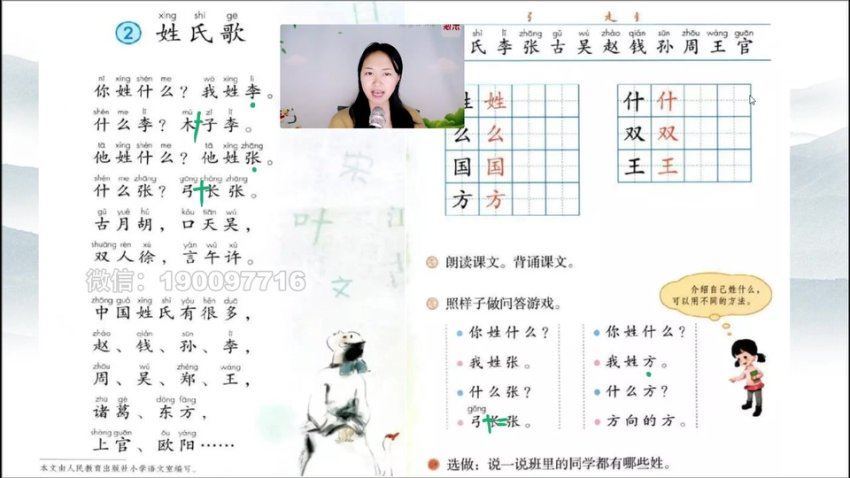 xìng shì gē
② 姓氏歌
nǐ xìng shén me wǒ xìng lǐ
你姓什么？我姓李。
shén me lǐ mù zǐ lǐ
什么李？木子李。
tā xìng shén me tā xìng zhāng
他姓什么？他姓张。
shén me zhāng gōng cháng zhāng
什么张？弓长张。
gǔ yuè hú kǒu tiān wú
古月胡，口天吴，
shuāng rén xú yán wǔ xǔ
双人徐，言午许。
微信：190097716
zhōng guó xìng shì yǒu hěn duō
中国姓氏有很多，
zhào qián sūn lǐ
赵、钱、孙、李，
zhōu wú zhèng wáng
周、吴、郑、王，
zhū gě dōng fāng
诸葛、东方，
shàng guān ōu yáng
上官、欧阳……
本文由人民教育出版社小学语文室编写。
宋
叶
江
文
shì lǐ zhāng gǔ wú zhào qián sūn zhōu wáng guān
氏李张古吴赵钱孙周王官
姓 姓
么 么
国 国
方 方
什 什
双 双
王 王
朗读课文。背诵课文。
照样子做问答游戏。
你姓什么？
我姓张。
什么张？
gōng
弓长张。
你姓什么？
我姓方。
什么方？
方向的方。
介绍自己姓什么，
可以用不同的方法。
选做：说一说班里的同学都有哪些姓。